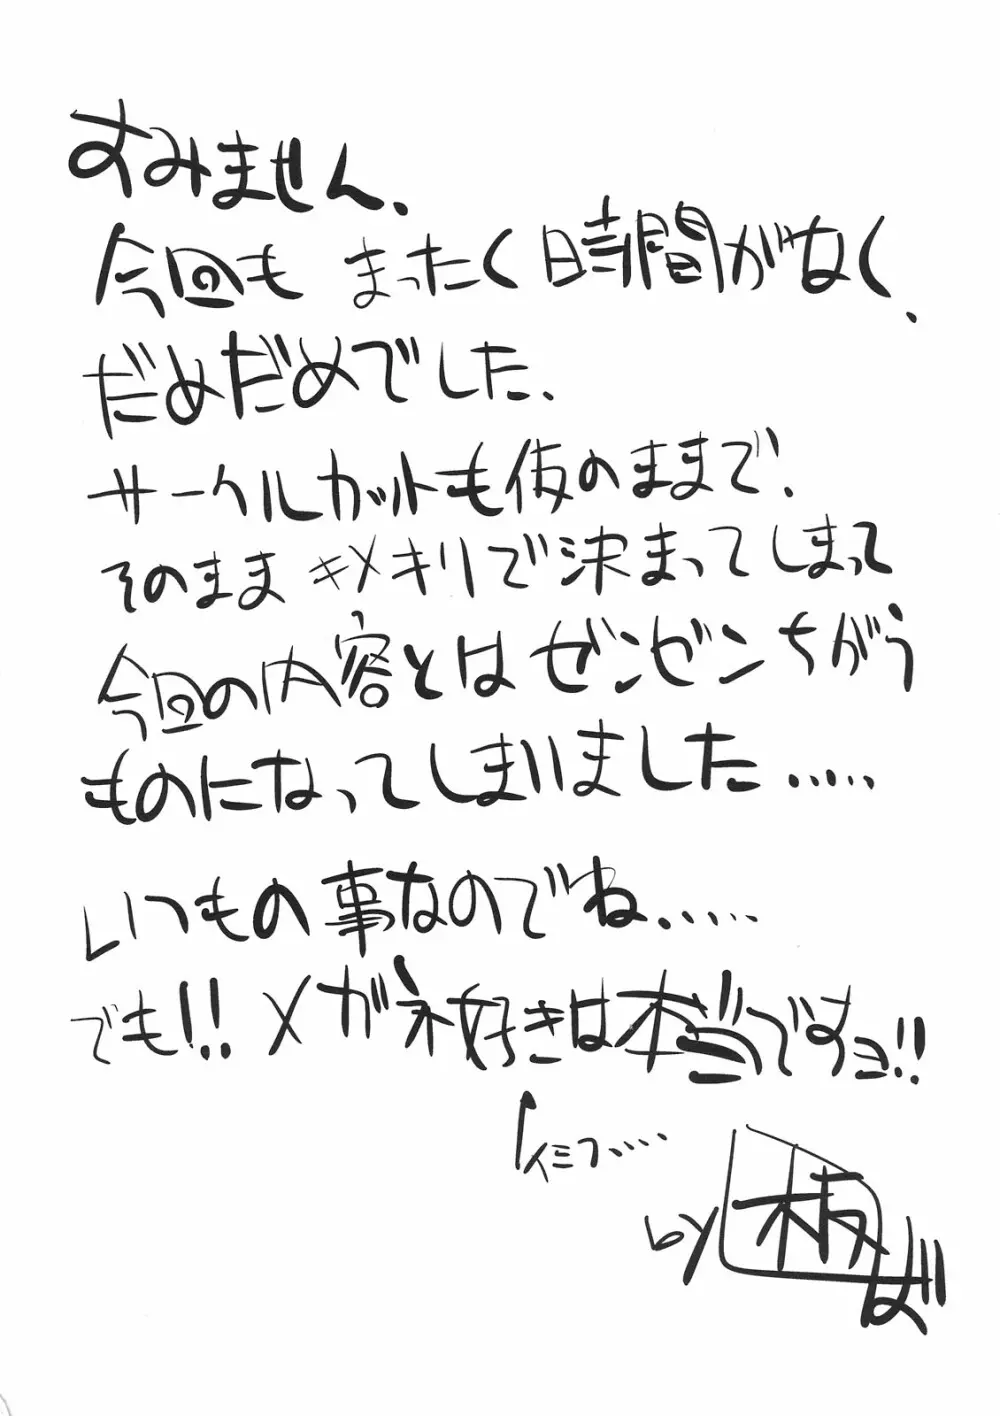 すみません.
今回も まったく 時間がなく.
だめだめでした.
サークルカットも仮のままで.
そのまま キメキリで決まってしまって
今回の内容とは ゼンゼン ちがう
ものになってしまいました.....
いつもの事なのでね.....
でも!! メガネ好きは本当ですョ!!
イミフ.....
by 板ば